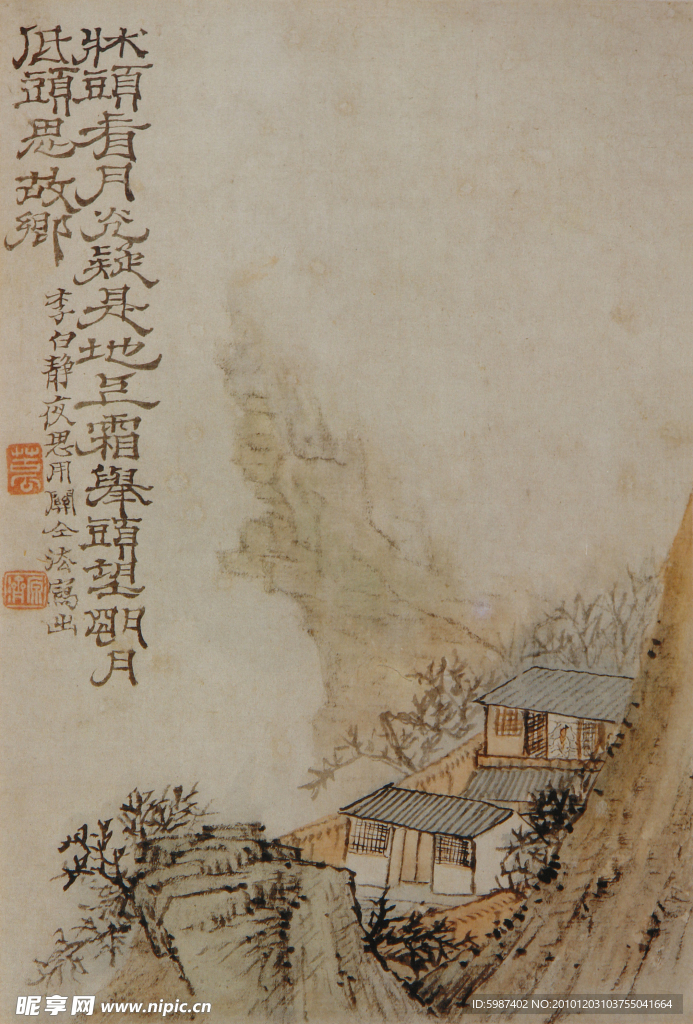 牀頭看月光疑是地上霜舉頭望明月
低頭思故鄉
李白靜夜思用關仝法寫出
昵享网 www.nipic.cn
ID:5987402 NO:20101203103755041664